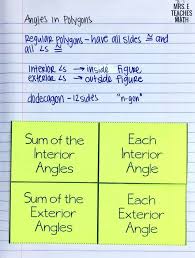 MRS. E
TEACHES
MATH
Angles in Polygons
Regular Polygons - have all sides ≅ and
all ∠s ≅
interior ∠s → inside figure
exterior ∠s → outside figure
dodecagon - 12 sides "n-gon"
Sum of the
Interior
Angles
Each
Interior
Angle
Sum of the
Exterior
Angles
Each
Exterior
Angle